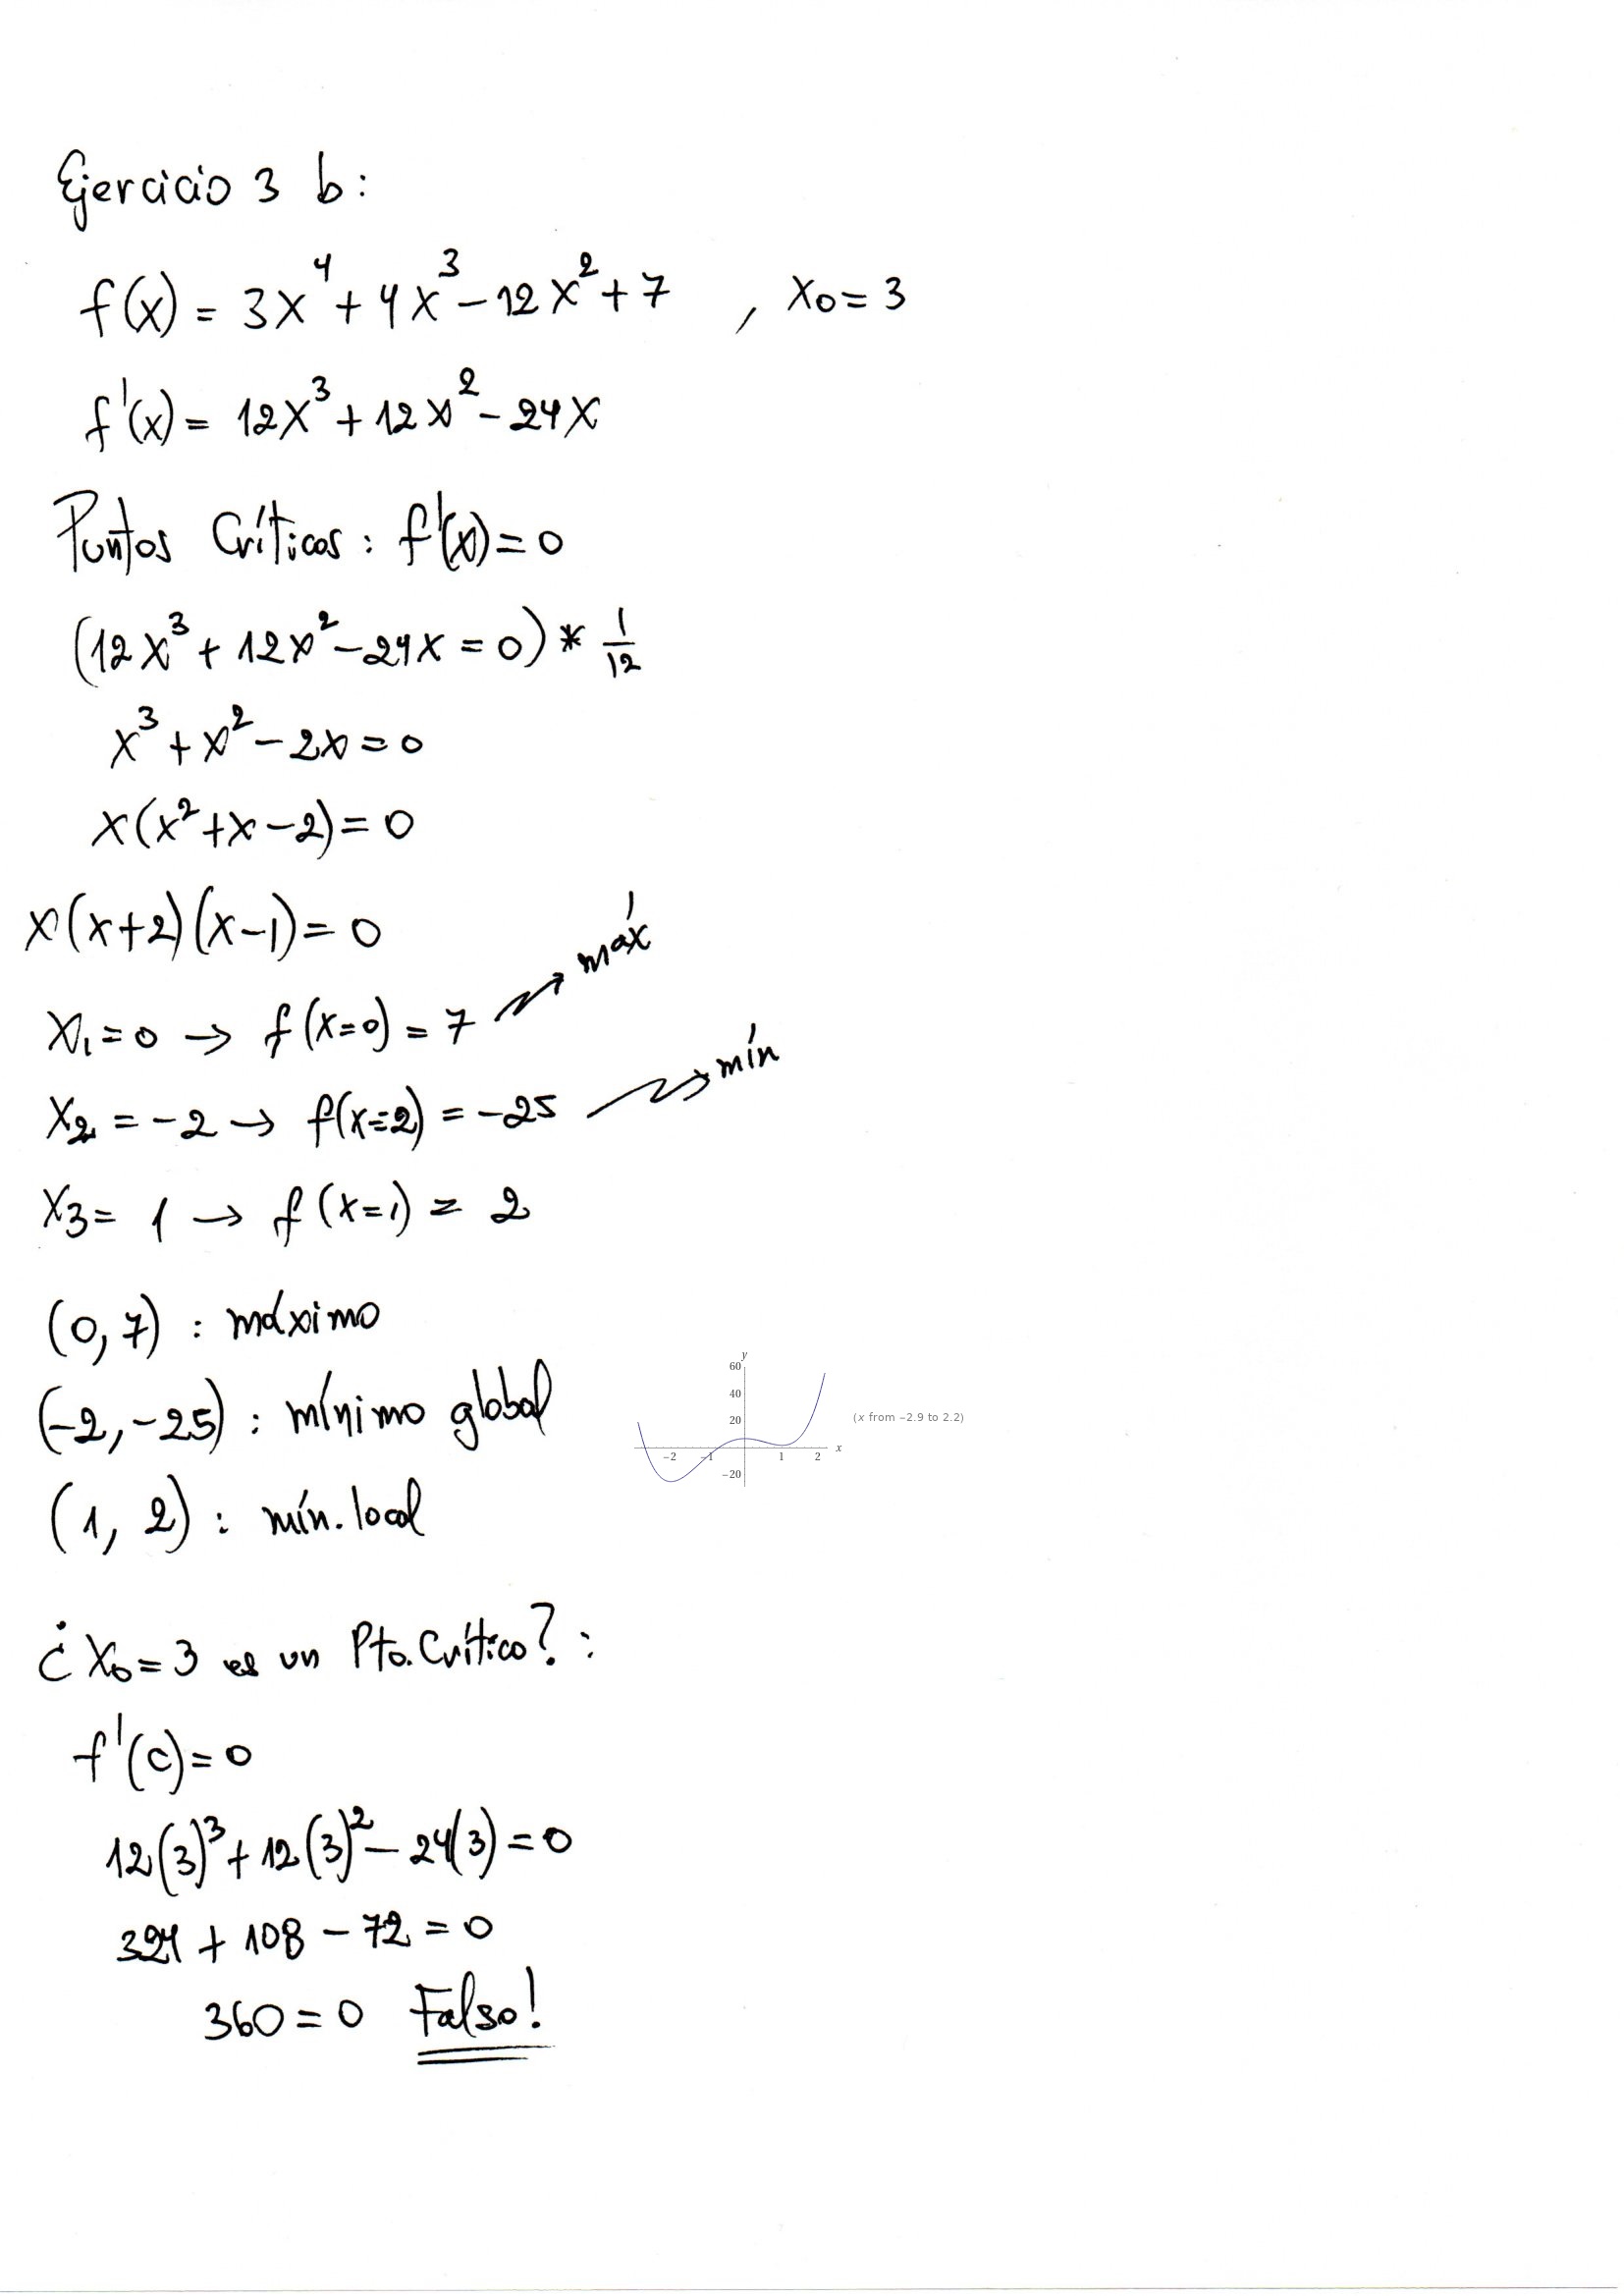 Ejercicio 3 b:
f(x) = 3x⁴ + 4x³ - 12x² + 7 , x₀ = 3
f'(x) = 12x³ + 12x² - 24x
Puntos Críticos: f'(x) = 0
(12x³ + 12x² - 24x = 0) * 1/12
x³ + x² - 2x = 0
x(x² + x - 2) = 0
x(x+2)(x-1) = 0
x₁ = 0 → f(x=0) = 7 → máx
x₂ = -2 → f(x=2) = -25 → mín
x₃ = 1 → f(x=1) = 2
(0, 7) : máximo
(-2, -25) : mínimo global
(1, 2) : mín. local
y
60
40
20
-20
-2 -1 1 2 x
(x from -2.9 to 2.2)
¿x₀ = 3 es un Pto. Crítico? :
f'(c) = 0
12(3)³ + 12(3)² - 24(3) = 0
324 + 108 - 72 = 0
360 = 0 Falso!